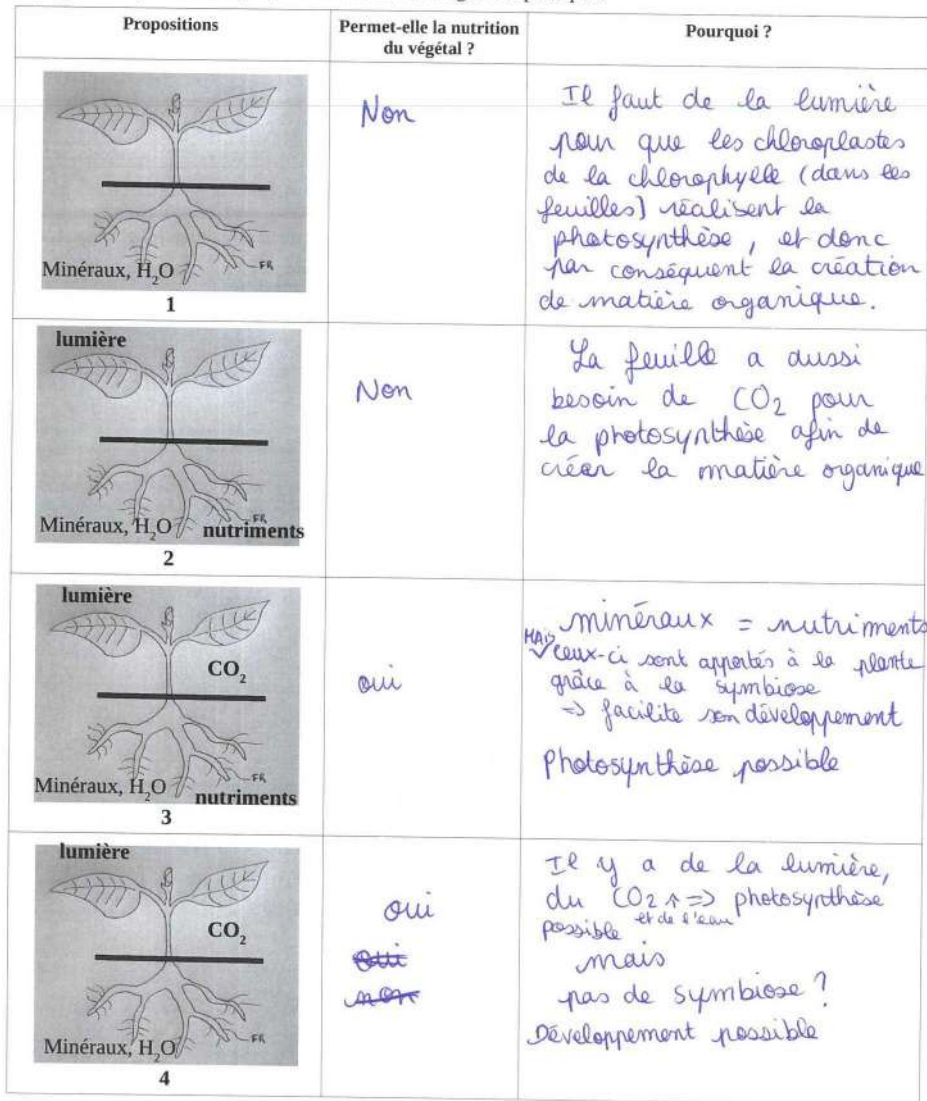 Propositions
Permet-elle la nutrition
du végétal ?
Pourquoi ?
Minéraux, H₂O
FR
1
Non
Il faut de la lumière
pour que les chloroplastes
de la chlorophylle (dans les
feuilles) réalisent la
photosynthèse, et donc
par conséquent la création
de matière organique.
lumière
Minéraux, H₂O
FR
nutriments
2
Non
La feuille a aussi
besoin de CO₂ pour
la photosynthèse afin de
créer la matière organique
lumière
CO₂
Minéraux, H₂O
FR
nutriments
3
oui
minéraux = nutriments
MAIS ceux-ci sont apportés à la plante
grâce à la symbiose
=> facilite son développement
Photosynthèse possible
lumière
CO₂
Minéraux, H₂O
FR
4
oui
oui
non
Il y a de la lumière,
du CO2 et de l'eau => photosynthèse
possible
mais
pas de symbiose ?
Développement possible